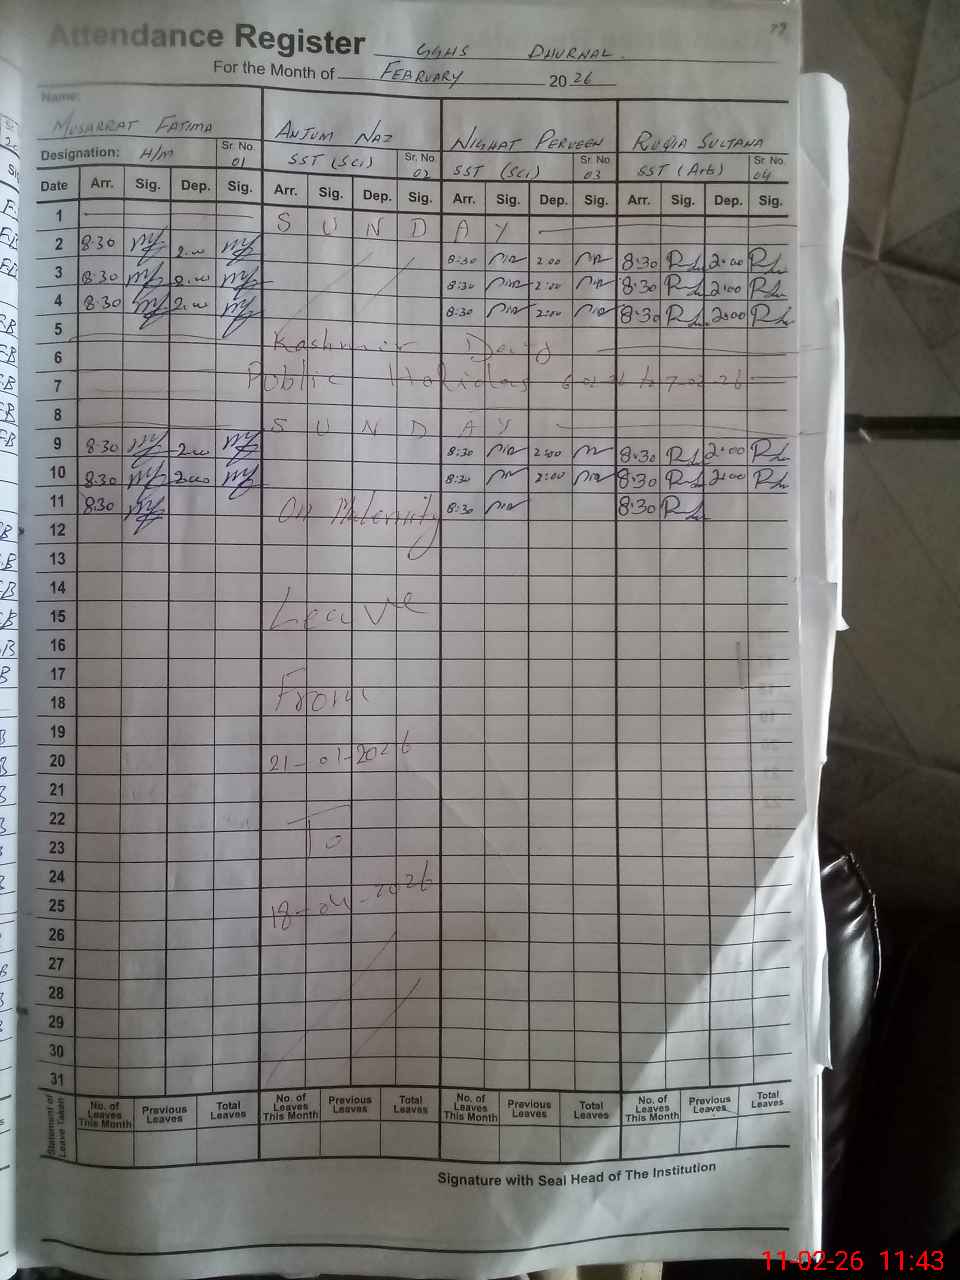 Attendance Register GGHS DHURNAL
79
For the Month of FEBRUARY 20 26
Name:
MUSARRAT FATIMA ANJUM NAZ NIGHAT PERVEEN RUQIA SULTANA
Designation: H/M Sr. No. 01 SST (Sci) Sr. No. 02 SST (Sci) Sr. No. 03 SST (Arts) Sr. No. 04
Date Arr. Sig. Dep. Sig. Arr. Sig. Dep. Sig. Arr. Sig. Dep. Sig. Arr. Sig. Dep. Sig.
1 S U N D A Y
2 8:30 2:00 8:30 2:00 8:30 2:00
3 8:30 2:00 8:30 2:00 8:30 2:00
4 8:30 2:00 8:30 2:00 8:30 2:00
5 Kashmir Day
6
7 Public Holiday 6-02-26 to 7-02-26
8 S U N D A Y
9 8:30 2:00 8:30 2:00 8:30 2:00
10 8:30 2:00 8:30 2:00 8:30 2:00
11 8:30 On Maternity 8:30 8:30
12
13
14
15 Leave
16
17
18 From
19
20 21-01-2026
21
22
23 To
24
25 18-04-2026
26
27
28
29
30
31
Statement of Leave Taken
No. of Leaves This Month Previous Leaves Total Leaves No. of Leaves This Month Previous Leaves Total Leaves No. of Leaves This Month Previous Leaves Total Leaves No. of Leaves This Month Previous Leaves Total Leaves
Signature with Seal Head of The Institution
11-02-26 11:43